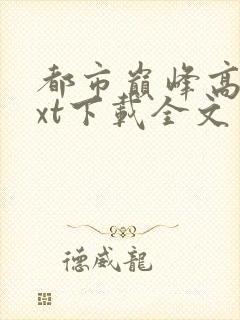 都市巔峰高
xt下載全文
德威龍